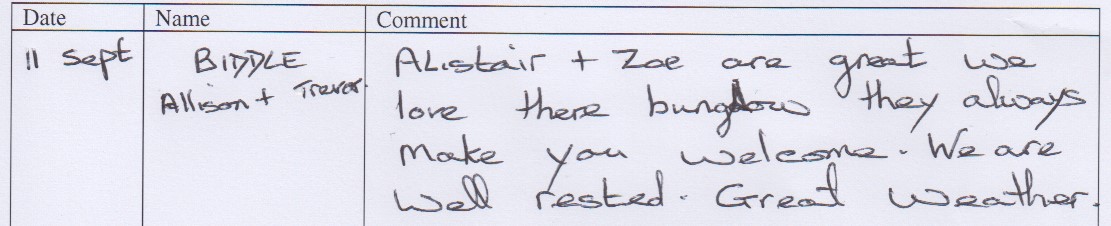 Date Name Comment
11 Sept BIDDLE ALIstair + Zoe are great we
Allison + Trevor. love there bungalow they always
Make you welcome. We are
Well rested. Great Weather.